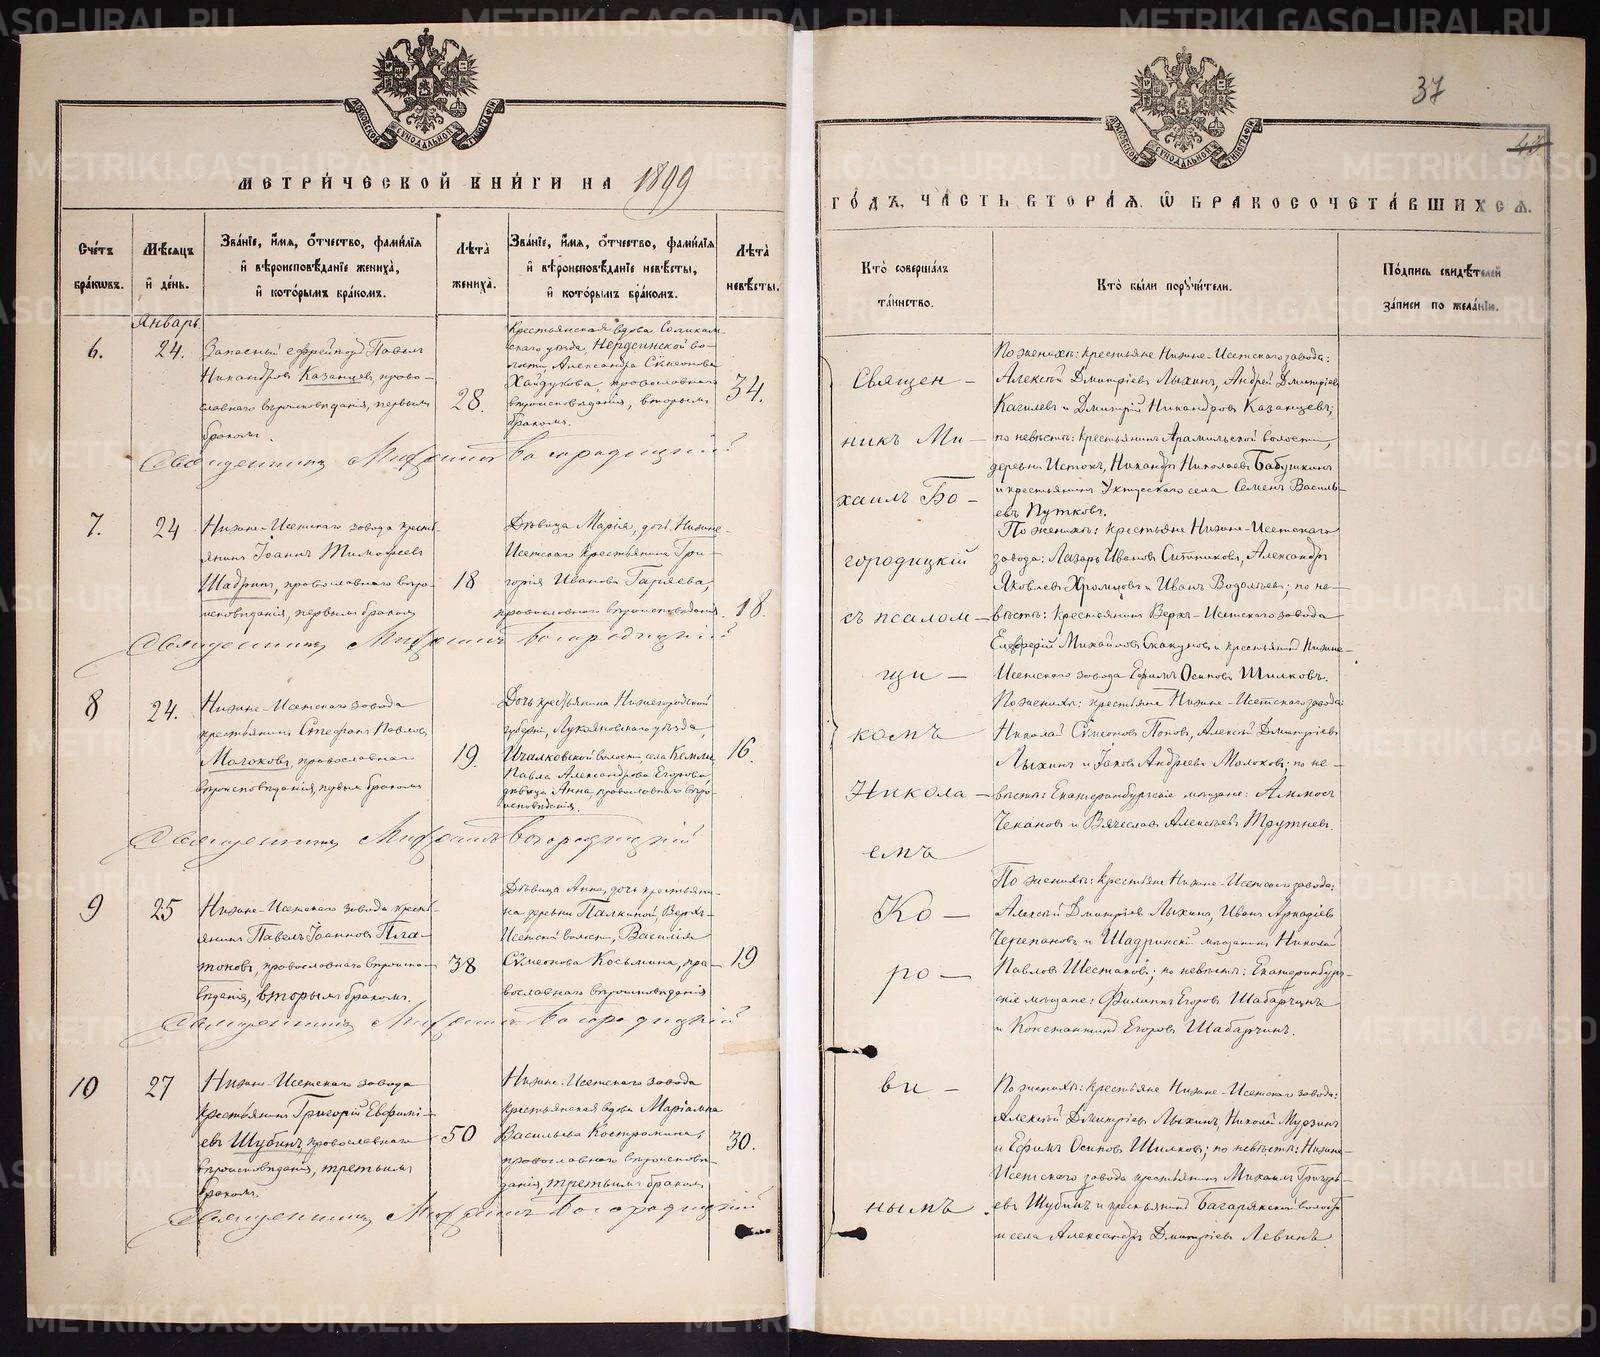 МЕТРИ́ЧЕСКОЙ КНИ́ГИ НА 1899
Счéтъ бра́кωвъ.
Мѣ́сяцъ и́ де́нь.
Зва́нїе, и́мя, ѻ́тчество, фами́лїя
и́ вѣроисповѣ́данїе жениха̀,
и́ кото́рымъ бра́комъ.
Лѣта̀ жениха̀.
Зва́нїе, и́мя, ѻ́тчество, фами́лїя
и́ вѣроисповѣ́данїе невѣ́сты,
и́ кото́рымъ бра́комъ.
Лѣта̀ невѣ́сты.
Январь.
6.
24.
Запасный ефрейторъ Павелъ
Никандровъ Казанцевъ, право-
славнаго вѣроисповѣданія, первымъ
бракомъ.
28.
Крестьянская вдова Соликам-
скаго уѣзда, Нердвинской во-
лости Александра Сѵмеонова
Хайдукова, православнаго
вѣроисповѣданія, вторымъ
бракомъ.
34.
Священникъ Михаилъ Богородицкій
7.
24
Нижне-Исетскаго завода кресть-
янинъ Іоаннъ Тимофеевъ
Шадринъ, православнаго вѣро-
исповѣданія, первымъ бракомъ
18
Дѣвица Марія, дочь Нижне-
Исетскаго крестьянина Гри-
горія Иванова Гаряева,
православнаго вѣроисповѣданія.
18.
Священникъ Михаилъ Богородицкій
8
24.
Нижне-Исетскаго завода
крестьянинъ Стефанъ Павловъ
Молоковъ, православнаго
вѣроисповѣданія, первымъ бракомъ
19.
Дочь крестьянина Нижегородской
губерніи, Лукояновскаго уѣзда,
Ичалковской волости, села Кемли
Павла Александрова Егорова,
дѣвица Анна, православнаго вѣро-
исповѣданія.
16.
Священникъ Михаилъ Богородицкій
9
25
Нижне-Исетскаго завода кресть-
янинъ Павелъ Іоанновъ Пла-
тоновъ, православнаго вѣроиспо-
вѣданія, вторымъ бракомъ.
38
Дѣвица Анна, дочь крестьяни-
на деревни Палкиной, Верхъ-
Исетской волости, Василія
Сѵмеонова Косьмина, пра-
вославнаго вѣроисповѣданія
19
Священникъ Михаилъ Богородицкій
10
27
Нижне-Исетскаго завода
крестьянинъ Григорій Евфимі-
евъ Шубинъ, православнаго
вѣроисповѣданія, третьимъ
бракомъ.
50
Нижне-Исетскаго завода
крестьянская вдова Маріамна
Васильева Костромина,
православнаго вѣроисповѣ-
данія, третьимъ бракомъ
30.
Священникъ Михаилъ Богородицкій
37
40
ГО́ДЪ, ЧА́СТЬ ВТОРА́Я, Ѡ БРАКОСОЧЕТА́ВШИХСЯ.
Кто̀ соверша́лъ
та́инство.
Кто̀ бы́ли поручи́тели.
По́дпись свидѣ́телей
за́писи по жела́нїю.
Священ-
никъ Ми-
хаилъ Бо-
городицкій
съ псалом-
щи-
комъ
Никола-
емъ
Ко-
ро-
ви-
нымъ
По женихѣ: крестьяне Нижне-Исетскаго завода:
Алексѣй Дмитріевъ Лыхинъ, Андрей Дмитріевъ
Кагилевъ и Дмитрій Никандровъ Казанцевъ;
по невѣстѣ: крестьянинъ Арамильской волости,
деревни Истокъ, Никандръ Николаевъ Бабушкинъ
и крестьянинъ Уктусскаго села Семенъ Василь-
евъ Путковъ.
По женихѣ: крестьяне Нижне-Исетскаго
завода: Лазарь Ивановъ Ситниковъ, Александръ
Яковлевъ Хромцовъ и Иванъ Водолѣевъ; по не-
вѣстѣ: крестьянинъ Верхъ-Исетскаго завода
Елеферій Михайловъ Скакуновъ и крестьянинъ Нижне-
Исетскаго завода Ефимъ Осиповъ Шилковъ.
По женихѣ: крестьяне Нижне-Исетскаго завода:
Николай Сѵмеоновъ Поповъ, Алексѣй Дмитріевъ
Лыхинъ и Іаковъ Андреевъ Молоковъ; по не-
вѣстѣ: Екатеринбургскіе мѣщане: Аммосъ
Чекановъ и Вячеславъ Алексѣевъ Тружневъ.
По женихѣ: крестьяне Нижне-Исетскаго завода:
Алексѣй Дмитріевъ Лыхинъ, Иванъ Аркадіевъ
Черепановъ и Шадринскій мѣщанинъ Николай
Павловъ Шестаковъ; по невѣстѣ: Екатеринбург-
скіе мѣщане: Филиппъ Егоровъ Шабарчинъ
и Константинъ Егоровъ Шабарчинъ.
По женихѣ: крестьяне Нижне-Исетскаго завода:
Алексѣй Дмитріевъ Лыхинъ, Николай Мурзинъ
и Ефимъ Осиповъ Шилковъ; по невѣстѣ: Нижне-
Исетскаго завода крестьянинъ Михаилъ Григорь-
евъ Шубинъ и крестьянинъ Багарякской волости
и села Александръ Дмитріевъ Левинъ.
METRIKI.GASO-URAL.RU